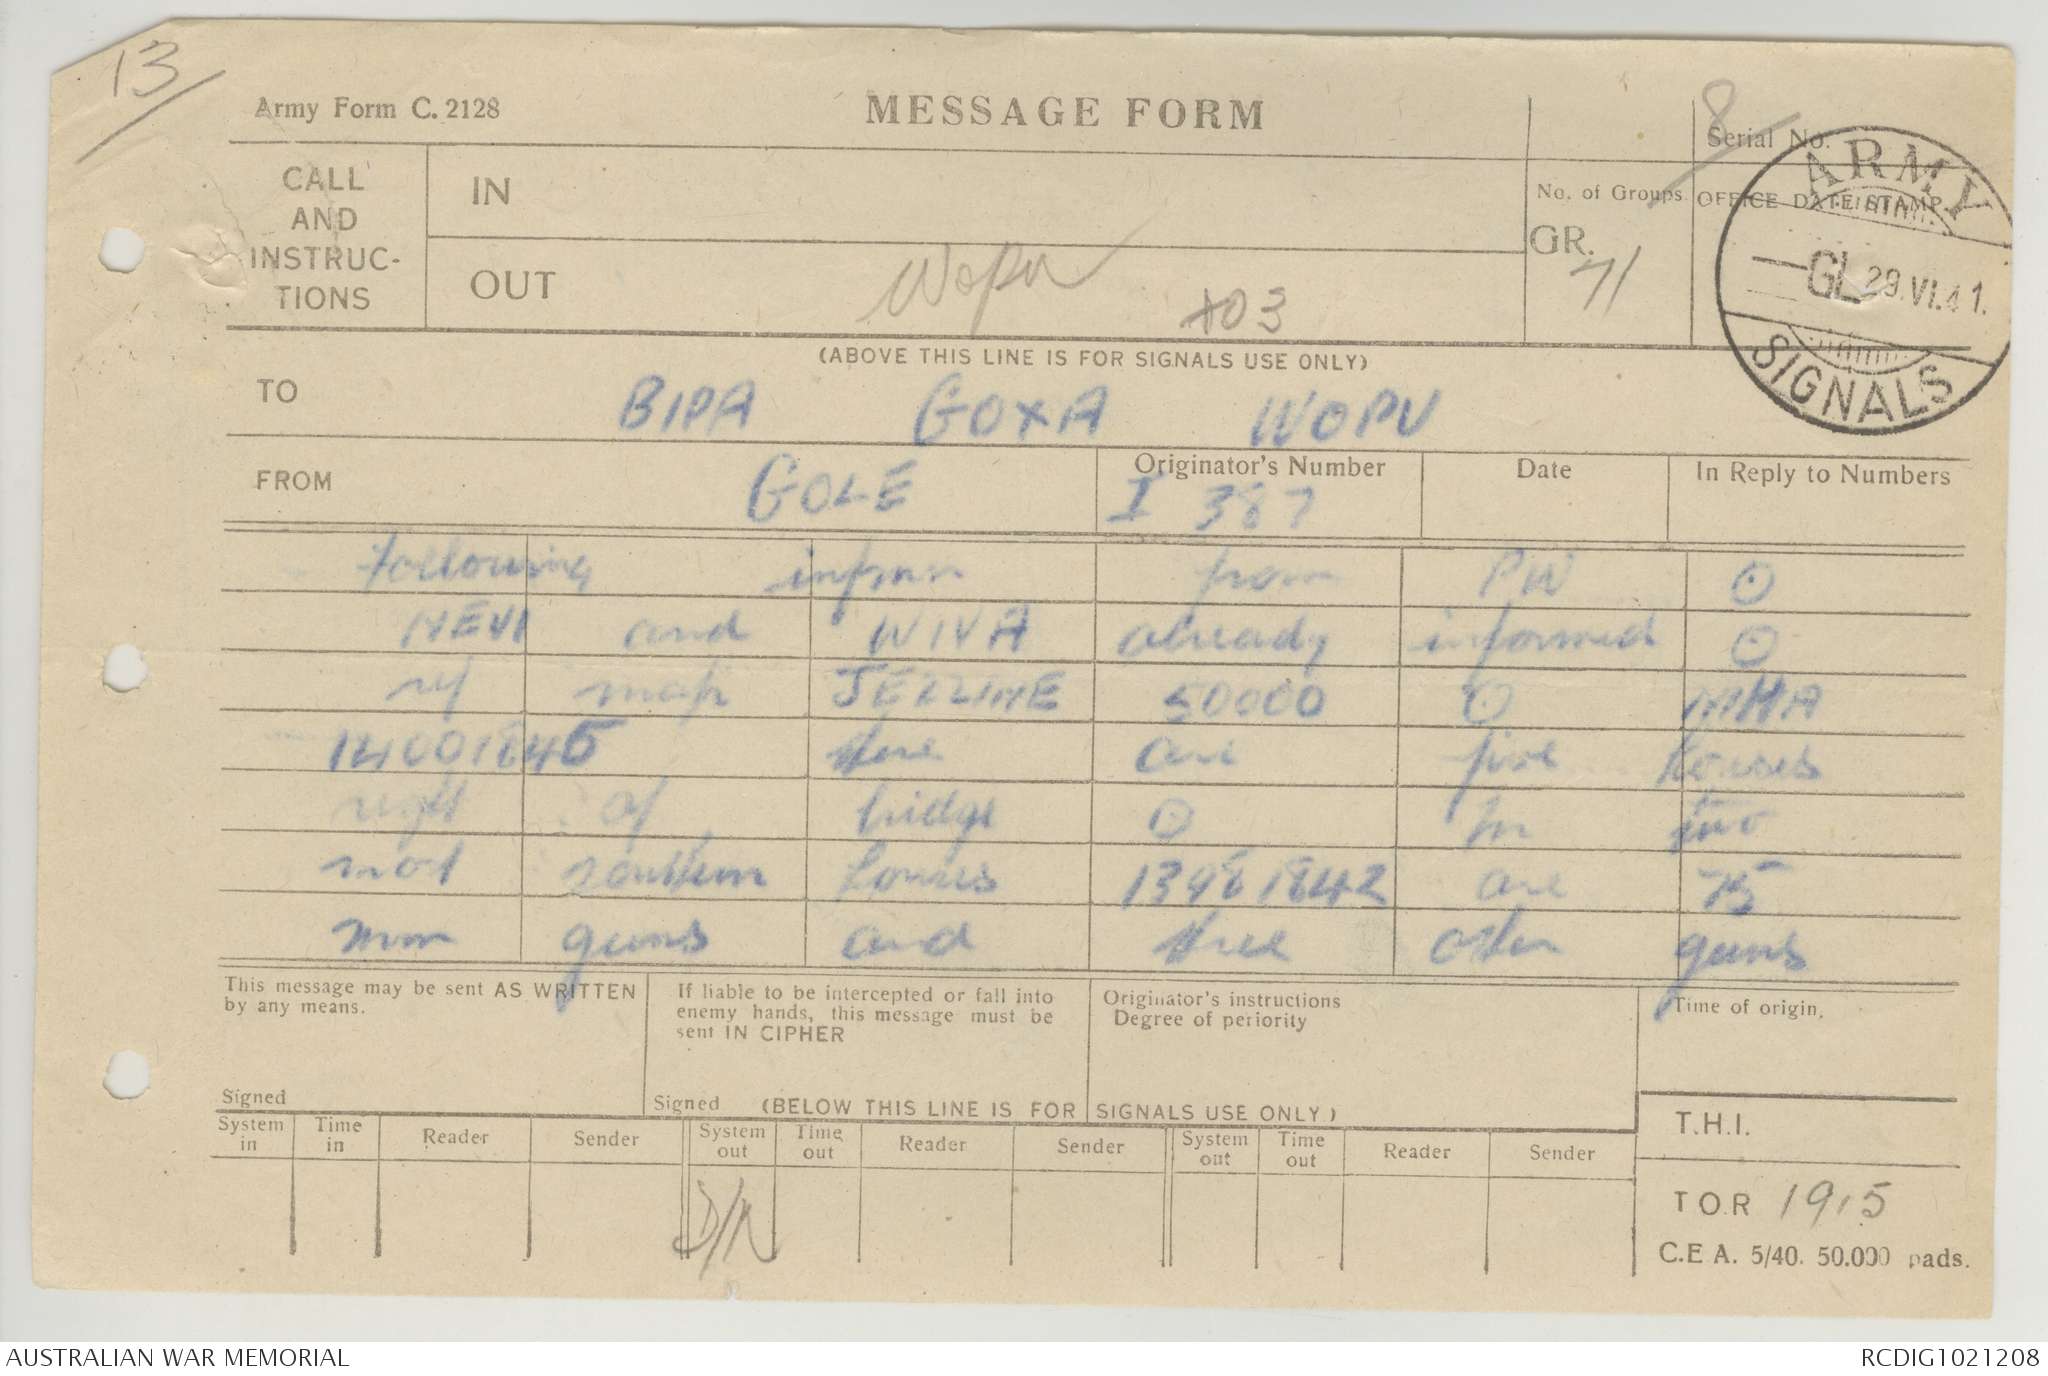 13/
Army Form C. 2128
MESSAGE FORM
8
Serial No.
CALL AND INSTRUC-TIONS
IN
No. of Groups
OFFICE DATE STAMP
GR. 71
ARMY
GL 29.VI.41.
SIGNALS
OUT
WOPU
X03
(ABOVE THIS LINE IS FOR SIGNALS USE ONLY)
TO BIPA GOXA WOPU
FROM GOLE
Originator's Number I 387
Date
In Reply to Numbers
Following infmn from PW ⊙
and already informed ⊙
ref map JEZZINE 50000 ⊙ MHA
14001845 there are five houses
right of bridge ⊙ In two
most southern houses 13981842 are 75
mm guns and three other guns
This message may be sent AS WRITTEN by any means.
Signed
If liable to be intercepted or fall into enemy hands, this message must be sent IN CIPHER
Signed
Originator's instructions
Degree of periority
Time of origin.
(BELOW THIS LINE IS FOR SIGNALS USE ONLY)
T.H.I.
System in Time in Reader Sender System out Time out Reader Sender System out Time out Reader Sender
D/R
T O.R 1915
C.E A. 5/40. 50.000 pads.
AUSTRALIAN WAR MEMORIAL
RCDIG1021208